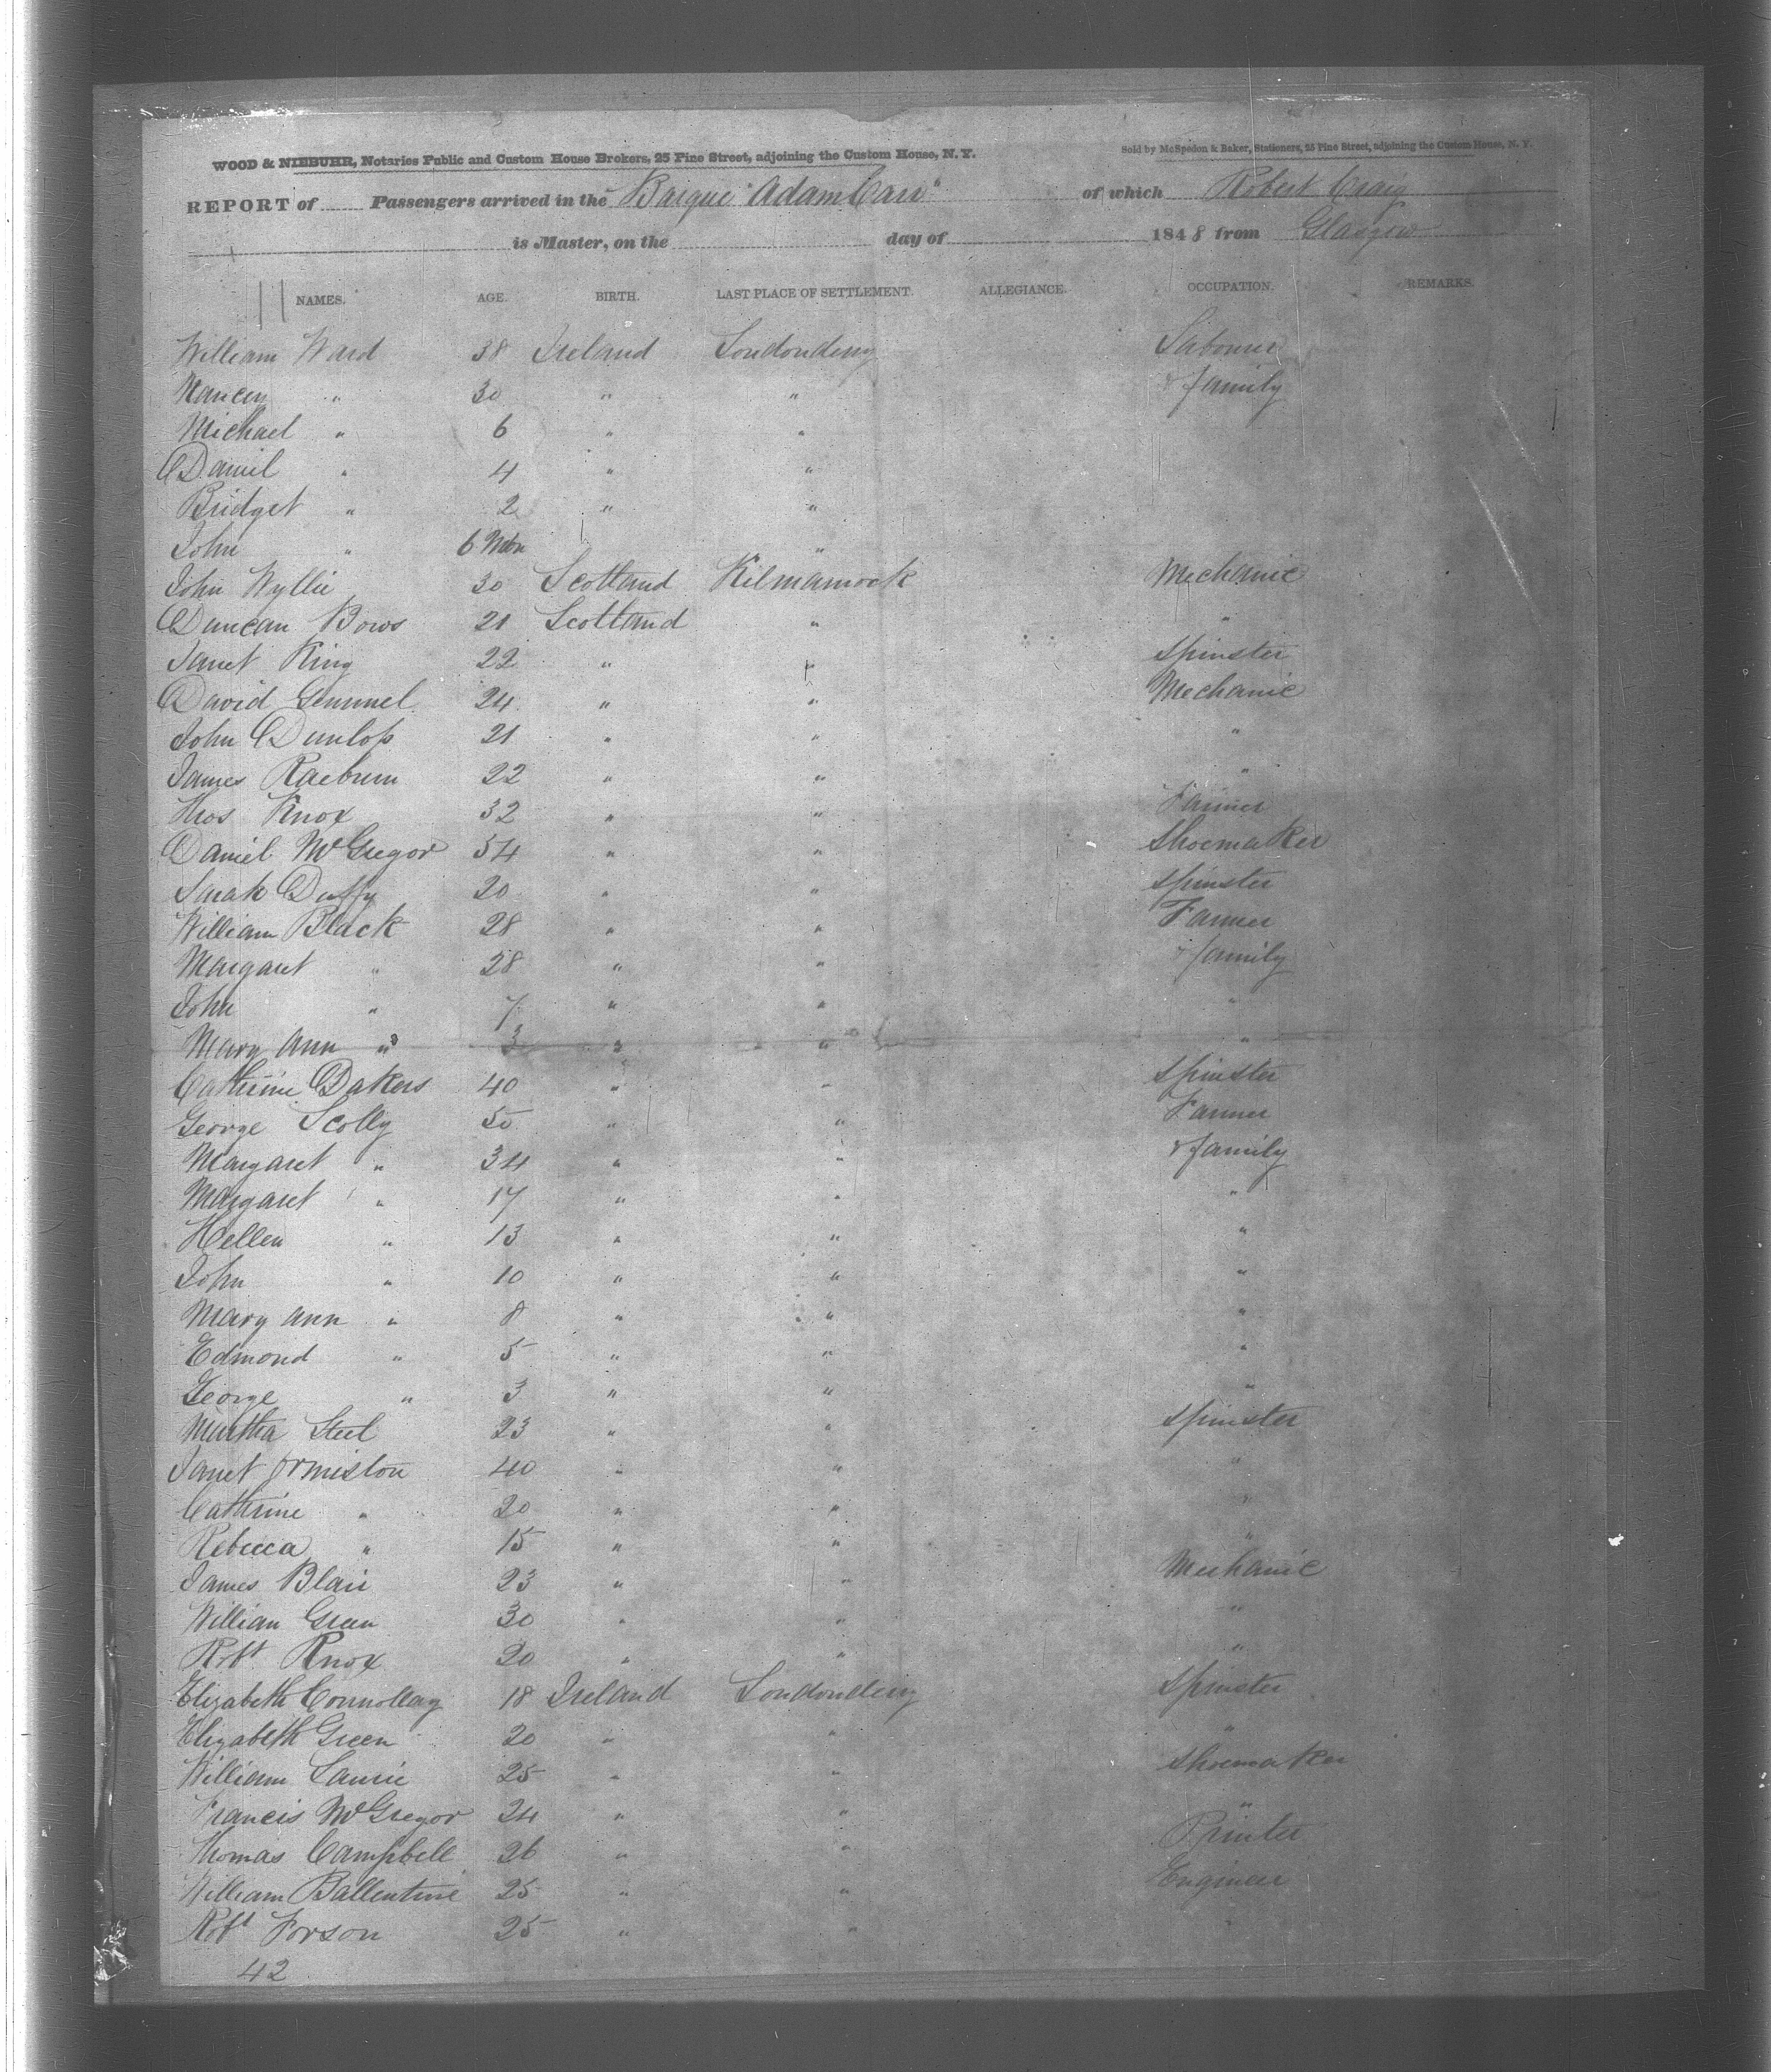 WOOD & NIEBUHR, Notaries Public and Custom House Brokers, 25 Pine Street, adjoining the Custom House, N. Y.
Sold by McSpedon & Baker, Stationers, 25 Pine Street, adjoining the Custom House, N. Y.
REPORT of Passengers arrived in the Barque "Adam Carr" of which Robert Craig
is Master, on the day of 1848 from Glasgow
NAMES. AGE. BIRTH. LAST PLACE OF SETTLEMENT. ALLEGIANCE. OCCUPATION. REMARKS.
William Ward 38 Ireland Londonderry Labourer
Nancy " 30 " " & family
Michael " 6 " "
Daniel " 4 " "
Bridget " 2 " "
John " 6 Mon "
John Wyllie 30 Scotland Kilmarnock Mechanic
Duncan Bows 21 Scotland " "
Janet King 22 " " Spinster
David Gemmel 24 " " Mechanic
John Dunlop 21 " " "
James Raeburn 22 " " "
Thos Knox 32 " " Farmer
Daniel McGregor 54 " " Shoemaker
Sarah Duffy 20 " " Spinster
William Black 28 " " Farmer
Margaret " 28 " " & family
John " 7 " " "
Mary Ann " 3 " " "
Catherine Dakers 40 " " Spinster
George Scolly 50 " " Farmer
Margaret " 34 " " & family
Margaret " 17 " " "
Hellen " 13 " " "
John " 10 " " "
Mary Ann " 8 " " "
Edmond " 5 " " "
George " 3 " " "
Martha Steel 23 " " Spinster
Janet Ormiston 40 " " "
Cathrine " 20 " " "
Rebecca " 15 " " "
James Blair 23 " " Mechanic
William Green 30 " " "
Robt Knox 20 " " "
Elizabeth Connollay 18 Ireland Londonderry Spinster
Elizabeth Green 20 " " "
William Laurie 25 " " Shoemaker
Francis McGregor 24 " " "
Thomas Campbell 26 " " Printer
William Ballentine 25 " " Engineer
Robt Forson 25 " " "
42